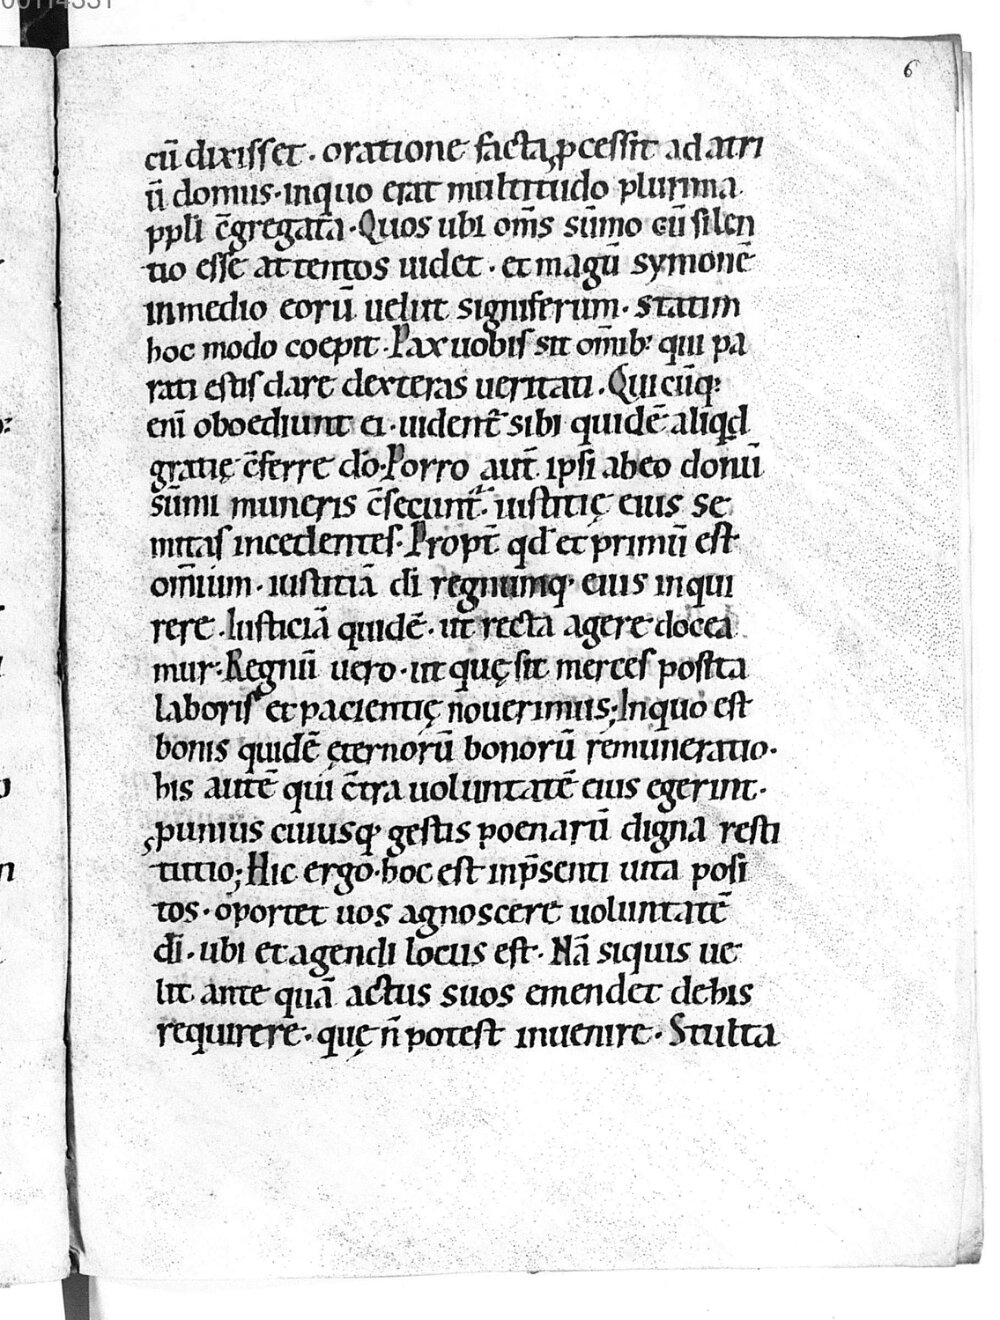 6
cū dixisset · oratione facta, pcessit ad atri
ū domus · inquo erat multitudo plurima
ppli c̄gregata · Quos ubi om̄s sūmo cū silen
tio esse attentos uidet · et magū symonē
inmedio eorū uelut signiferum · statim
hoc modo coepit · Pax uobis sit om̄ib: qui pa
rati estis dare dexteras ueritati · Quicūq:
eni oboediunt ei · uident̄ sibi quidē aliqd
gratię c̄ferre dō · Porro aut̄ ipsi abeo donū
sūmi muneris c̄secunt̄ · iustitię eius se
mitas incedentes · Propt̄ qd et primū est
om̄ium · iustitiā dī regnumq; eius inqui
rere · Iusticiā quidē · ut recta agere docea
mur · Regnū uero · ut quę sit merces posita
laboris et pacientię nouerimus; Inquo est
bonis quidē ęternorū bonorū remuneratio ·
his autē qui c̄tra uoluntatē eius egerint ·
p unius cuiusq; gestis poenarū digna resti
tutio; Hic ergo · hoc est inp̄senti uita posi
tos · oportet uos agnoscere uoluntatē
dī · ubi et agendi locus est · Nā siquis ue
lit ante quā actus suos emendet de his
requirere · quę n̄ potest inuenire · Stulta